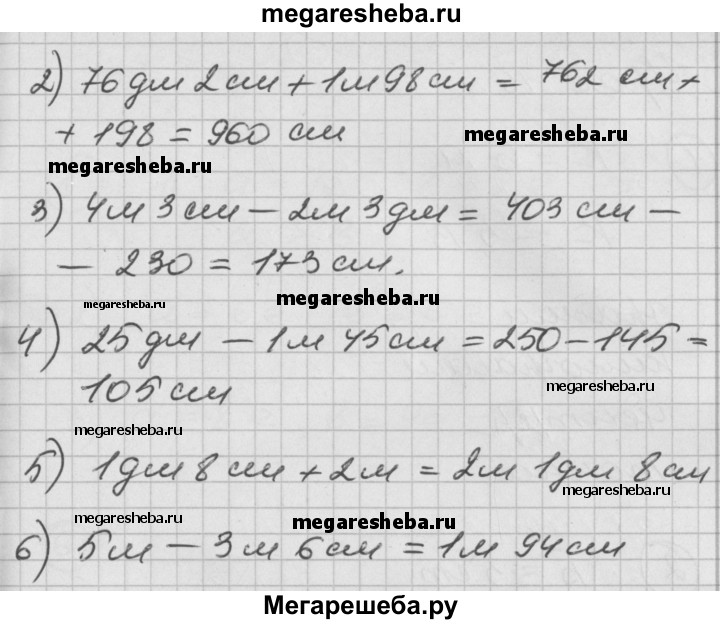 megaresheba.ru
2) 76 дм 2 см + 1 м 98 см = 762 см +
+ 198 = 960 см
megaresheba.ru
megaresheba.ru
3) 4 м 3 см — 2 м 3 дм = 403 см —
— 230 = 173 см.
megaresheba.ru
megaresheba.ru
4) 25 дм — 1 м 45 см = 250 — 145 =
105 см
megaresheba.ru
megaresheba.ru
5) 1 дм 8 см + 2 м = 2 м 1 дм 8 см
megaresheba.ru
megaresheba.ru
megaresheba.ru
6) 5 м — 3 м 6 см = 1 м 94 см
Мегарешеба.ру